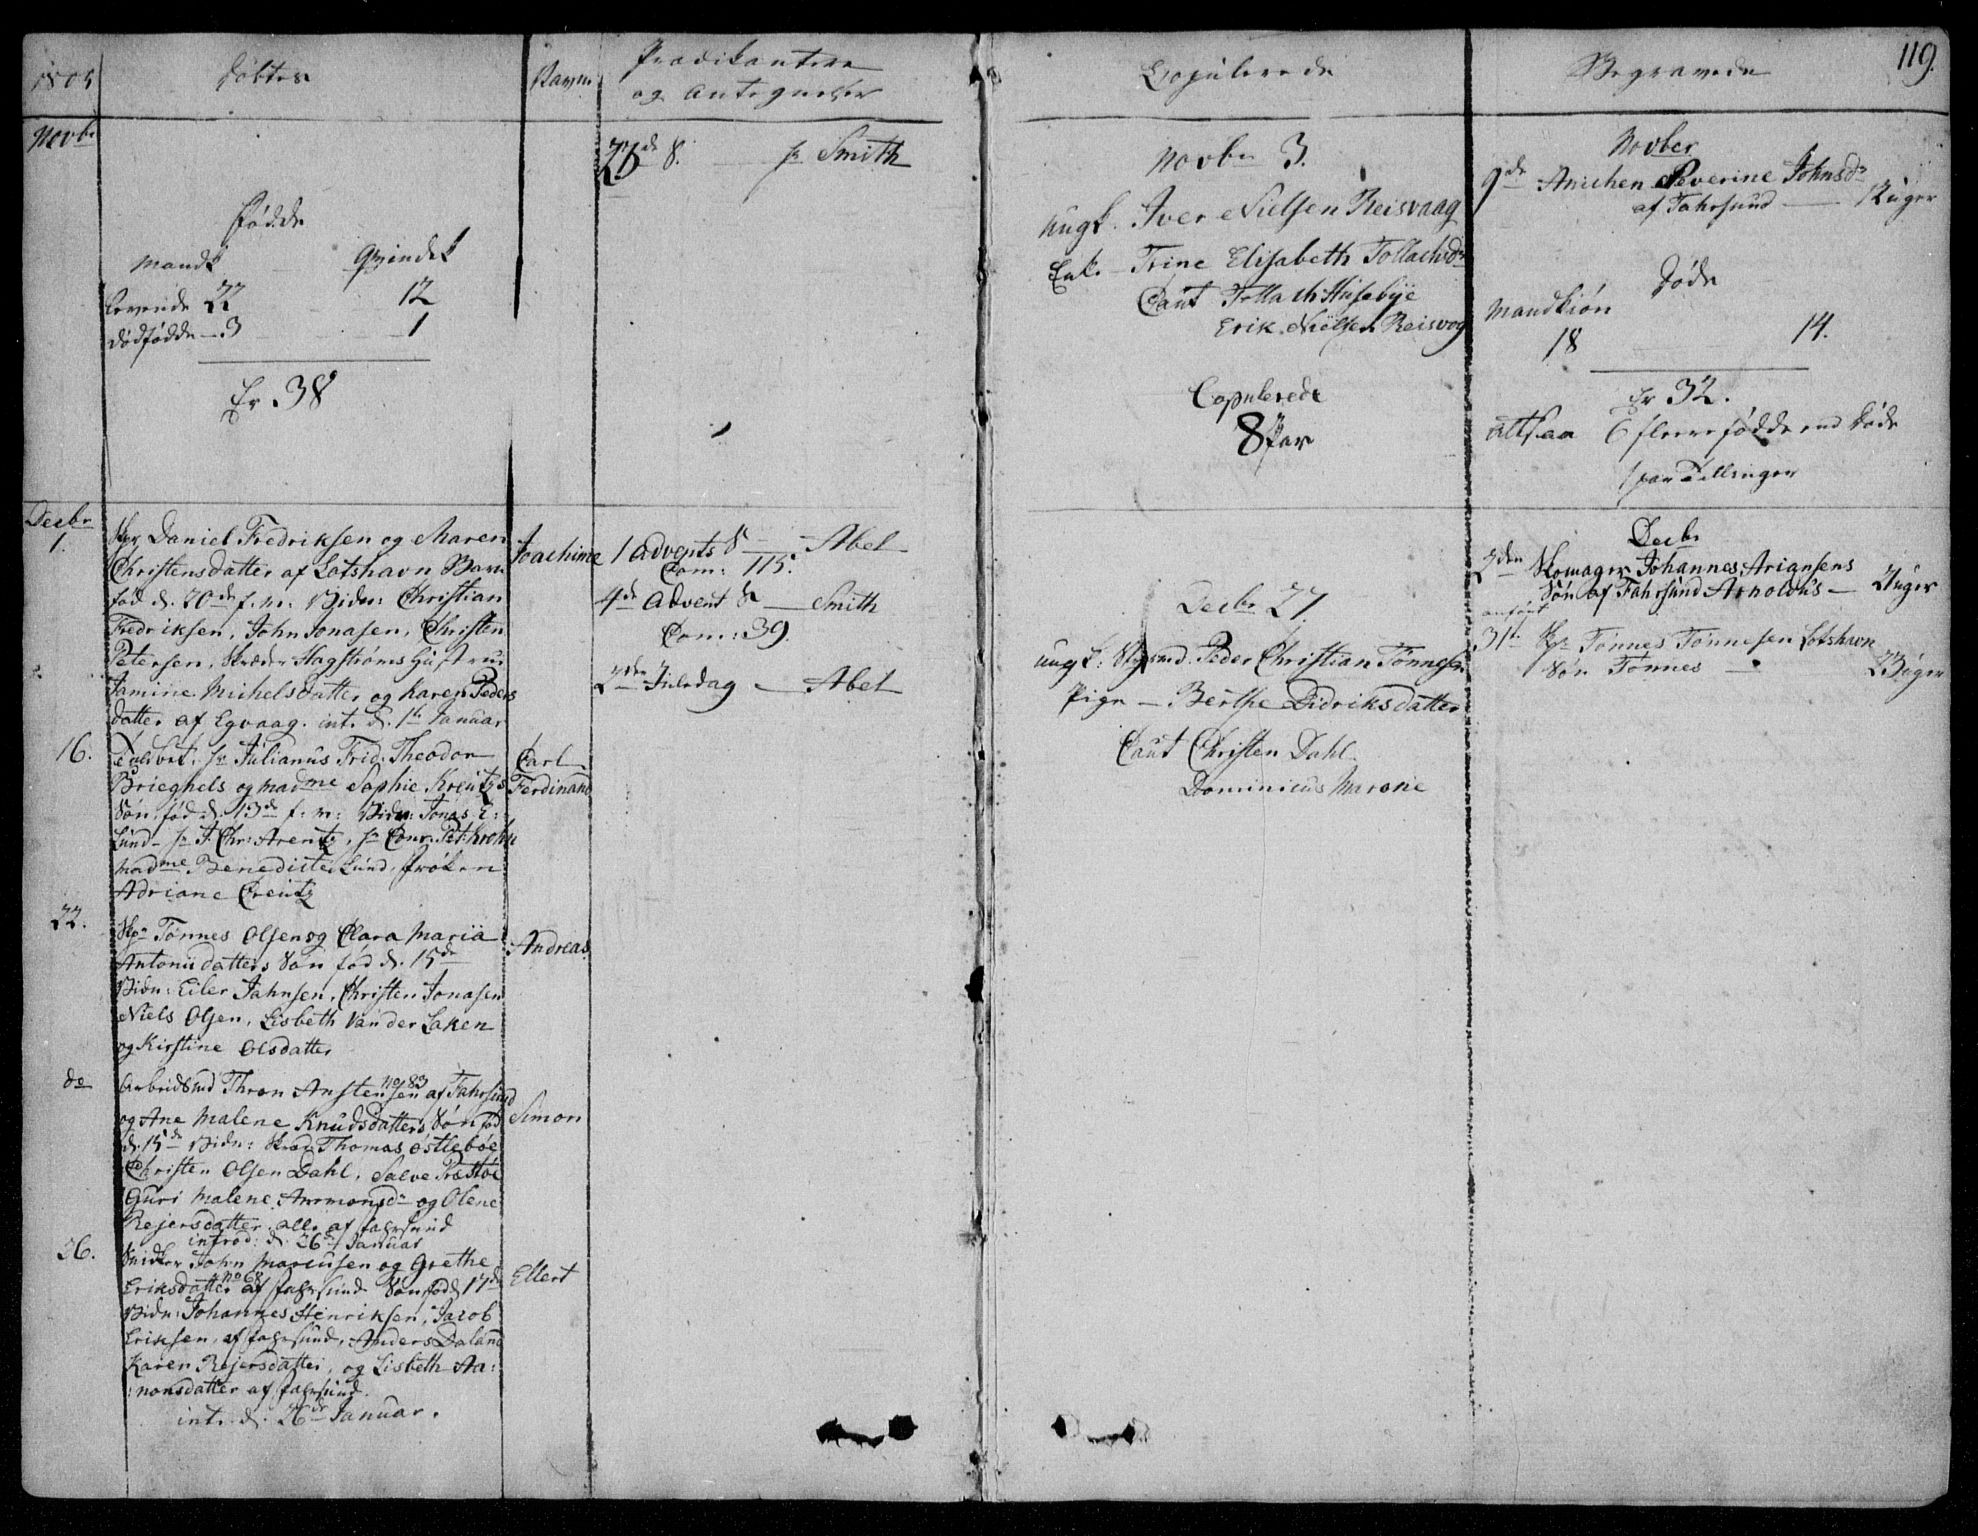 1805
Døbte
Navne
Prædikantere
og Antegnelser
Copulerede
Begravede
119.
Novbr
Fødde
Mandk Qvindek
Levende 22 12
dødfødde 3 1
Er 38
8. Hr Smith
Novbr 3.
Ungk. Iver Nielsen Reisvaag
Enke Trine Elisabeth Tollachsdr
Caut Tollach Husebye
Erik Nielsen Reisvog
Copulerede
8 Par
Novber
9de Anichen Severine Johnsdr
af Fahrsund Uger
Døde
Mandkiøn
18 14.
Er 32.
altsaa 6 fleere fødde end døde
1 par Tvillinger
Decbr
1.
Skpr Daniel Fredriksen og Maren
Christensdatter af Lotshavn Barn
fød d. 20de f. m. Vidn: Christian
Fredriksen, John Jonasen, Christen
Petersen, Skræder Hagstrøms Hustrue
Jamine Michelsdatter og Karen Peders
datter af Egvaag. int. d. 1te Januar
Joachime
16.
Hr Julianus Frid. Theodor
Brieghels og Madme Sophie Kreutz's
Søn fød d. 13de f. m: Vidn: Jonas E:
Lund, Hr J. Chr: Arentz, Hr Conr. Pet: Krohn
Madme Benedicte Lund, frøken
Adriane Creutz
Carl
Ferdinand
22.
Skpr Tønnes Olsen og Clara Maria
Antonii datters Søn fød d. 15de
Vidn: Eiler Jahnsen, Christen Jonasen
Niels Olsen, Lisbeth Van der Laken
og Kirstine Olsdatter
Andreas
do
Arbeidsmd Thron Anstensen No 83 af Fahrsund
og Ane Malene Knudsdatters Søn fød
d. 15de Vidn: Skræd Thomas Østlebøe
Christen Olsen Dahl, Salve Præstøe
Guri Malene Anmonsdr og Olene
Rejersdatter alle af Fahrsund
introd: d. 26de Januar
Simon
26.
Snidker John Marcusen og Grethe
Eriksdatter No 68 af Fahrsund Søn fød d 17de
Vidn: Johannes Henriksen, Jacob
Eriksen, af Fahrsund, Anders Daland
Karen Rejersdatter, og Lisbeth Aa:
:nonsdatter af Fahrsund.
int. d. 26de Januar.
Ellert
1 Advents S Abel
Com: 115.
4de Advent S Smith
Com: 39.
2den Juledag Abel
Decbr 27.
Ungk: Styrmd. Peder Christian Tønnesen
Pige Berthe Didriksdatter
Caut Christen Dahl
Dominicus Marone
Decbr
2den Skomager Johannes Arignsens
Søn af Fahrsund Arnoldus Uger
31te Skpr Tønnes Tønnesen Lotshavn
Søn Tønnes Uger